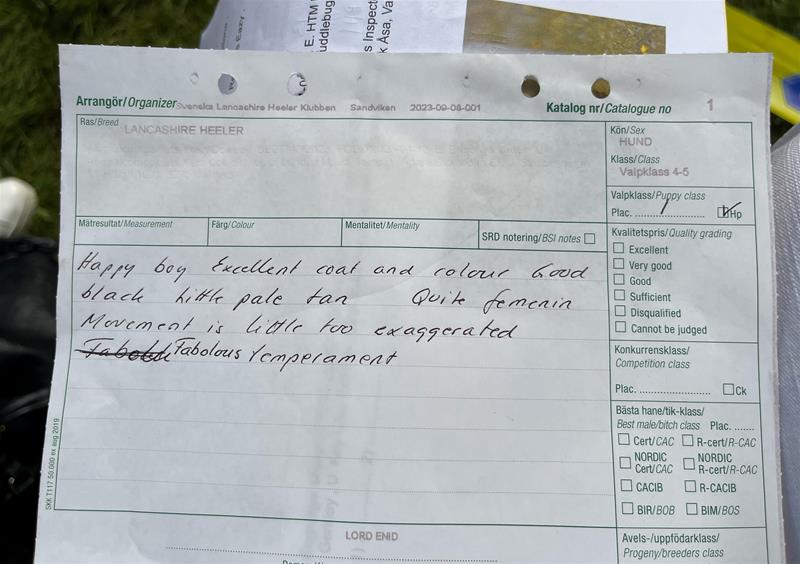 E. HTM
uddlebug
s Inspect
k Åsa, Va
Arrangör/Organizer Svenska Lancashire Heeler Klubben Sandviken 2023-09-08-001 Katalog nr/Catalogue no 1
Ras/Breed LANCASHIRE HEELER
Kön/Sex
HUND
Klass/Class
Valpklass 4-5
Valpklass/Puppy class
Plac. 1 Hp
Mätresultat/Measurement Färg/Colour Mentalitet/Mentality SRD notering/BSI notes
Happy boy Excellent coat and colour Good
black little pale tan Quite femenin
Movement is little too exaggerated
Fabolous temperament
Kvalitetspris/Quality grading
Excellent
Very good
Good
Sufficient
Disqualified
Cannot be judged
Konkurrensklass/
Competition class
Plac. Ck
Bästa hane/tik-klass/
Best male/bitch class Plac.
Cert/CAC R-cert/R-CAC
NORDIC Cert/CAC NORDIC R-cert/R-CAC
CACIB R-CACIB
BIR/BOB BIM/BOS
Avels-/uppfödarklass/
Progeny/breeders class
SKK T117 50.000 ex aug 2019
LORD ENID